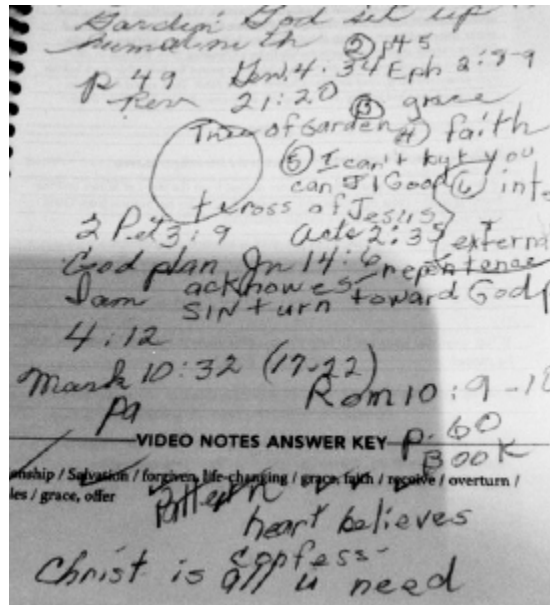 Garden God set up
② p45
p 49 Gen. 4:34 Eph 2:8-9
Rev 21:20 ③ grace
Tree of Garden ④ faith
⑤ I can't but you
can I Good ⑥ into
cross of Jesus
2 Pet 3:9 Acts 2:35 external
God plan Jn 14:6 repentence
I am acknowes
SIN turn toward God
4:12
Mark 10:32 (17-22)
Rom 10:9-10
pg
VIDEO NOTES ANSWER KEY
p. 60
BOOK
onship / Salvation / forgiven, life-changing / grace, faith / receive / overturn /
les / grace, offer
Pattern
heart believes
confess-
Christ is all u need